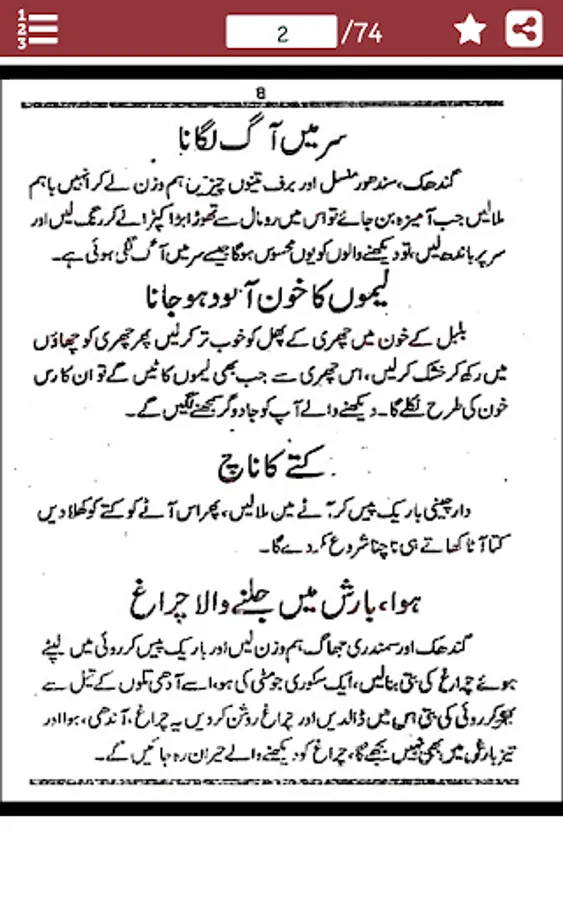 1
2
3
2 /74
8
سر میں آگ لگانا
گندھک، سندھور منسل اور برف تینوں چیزیں ہم وزن لے کر انہیں باہم
ملالیں جب آمیزہ بن جائے تو اس میں رومال سے تھوڑا بڑا کپڑا لے کر رنگ لیں اور
سر پر باندھ لیں، تو دیکھنے والوں کو یوں محسوس ہوگا جیسے سر میں آگ لگی ہوئی ہے۔
لیموں کا خون آلود ہو جانا
بلبل کے خون میں چھری کے پھل کو خوب تر کرلیں پھر چھری کو چھاؤں
میں رکھ کر خشک کرلیں، اس چھری سے جب بھی لیموں کاٹیں گے تو ان کا رس
خون کی طرح نکلے گا۔ دیکھنے والے آپ کو جادوگر سمجھنے لگیں گے۔
کتے کا ناچ
دارچینی باریک پیس کر آٹے میں ملالیں، پھر اس آٹے کو کتے کو کھلا دیں
کتا آٹا کھاتے ہی ناچنا شروع کر دے گا۔
ہوا، بارش میں جلنے والا چراغ
گندھک اور سمندری جھاگ ہم وزن لیں اور باریک پیس کر روئی میں لپیٹے
ہوئے چراغ کی بتی بنالیں، ایک سکوری جو مٹی کی ہو، اسے آدھی تلوں کے تیل سے
بھر کر روئی کی بتی اس میں ڈال دیں اور چراغ روشن کر دیں یہ چراغ، آندھی، ہوا اور
تیز بارش میں بھی نہیں بجھے گا، چراغ کو دیکھنے والے حیران رہ جائیں گے۔